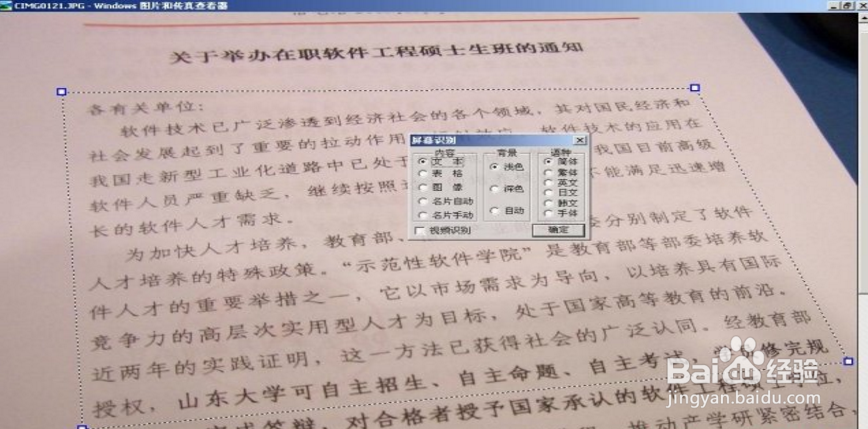 CIMG0121.JPG - Windows 图片和传真查看器
关于举办在职软件工程硕士生班的通知
各有关单位：
软件技术已广泛渗透到经济社会的各个领域，其对国民经济和
社会发展起到了重要的拉动作用 软件技术的应用在
我国走新型工业化道路中已处于 我国目前高级
软件人员严重缺乏，继续按照 不能满足迅速增
长的软件人才需求。
为加快人才培养，教育部、 委分别制定了软件
人才培养的特殊政策。“示范性软件学院”是教育部等部委培养软
件人才的重要举措之一，它以市场需求为导向，以培养具有国际
竞争力的高层次实用型人才为目标，处于国家高等教育的前沿。
近两年的实践证明，这一方法已获得社会的广泛认同。经教育部
授权，山东大学可自主招生、自主命题、自主考试，学员修完规
答辩，对合格者授予国家承认的软件工程硕士学位，
推动产学研紧密结合，
屏幕识别
内容
文本
表格
图像
名片自动
名片手动
视频识别
背景
浅色
深色
自动
语种
简体
繁体
英文
日文
韩文
手体
确定
Baidu经验
jingyan.baidu.com